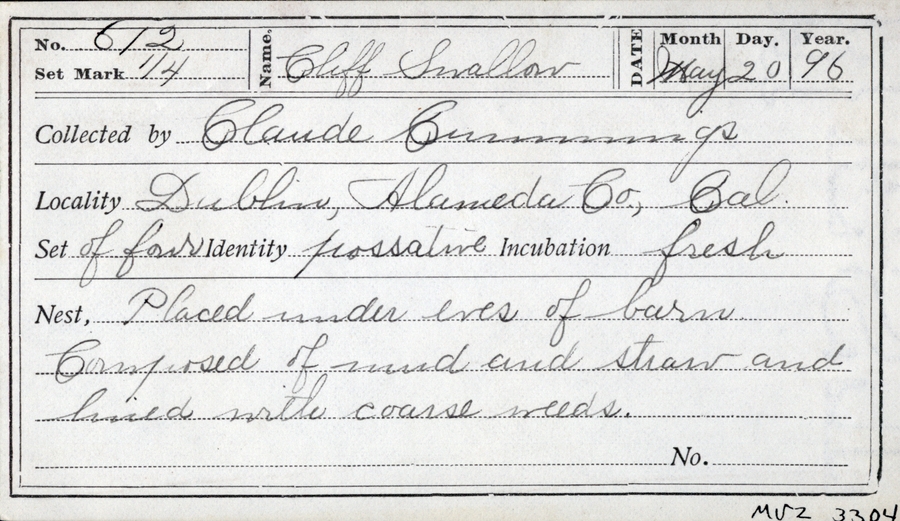 No. 612 Name. Cliff Swallow DATE Month Day. Year.
Set Mark 1/4 May 20 96
Collected by Claude Cummings
Locality Dublin, Alameda Co., Cal.
Set of four Identity possative Incubation fresh
Nest, Placed under eves of barn
Composed of mud and straw and
lined with coarse weeds.
No.
MVZ 3304